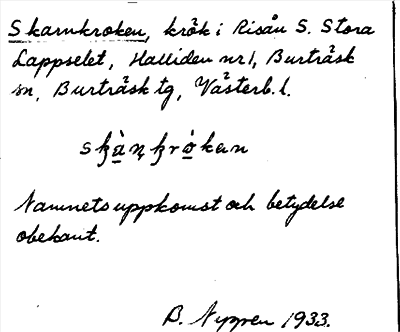 Skarnkroken, krök i Risån S. Stora
Lappselet, Halliden nr 1, Burträsk
sn, Burträsk tg, Västerb. l.
skà̱ṇkrò̱kən
Namnets uppkomst och betydelse
obekant.
B. Nyppen 1933.